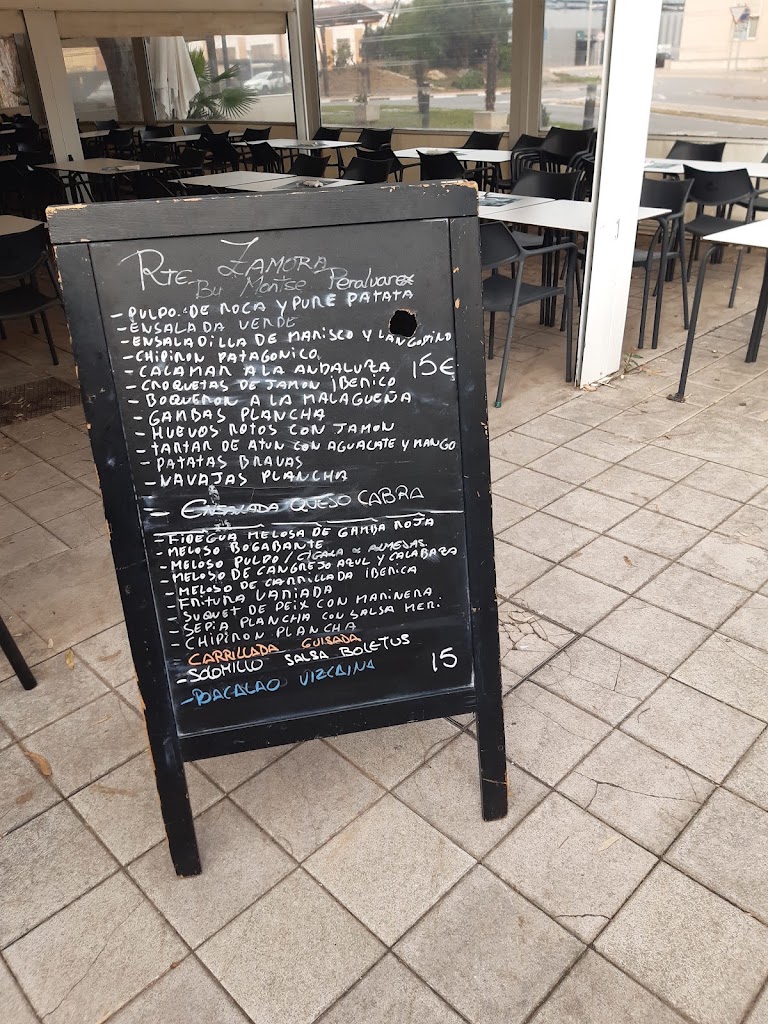 Rte Zamora
By Montse Peralvarez
- PULPO DE ROCA Y PURE PATATA
- ENSALADA VERDE
- ENSALADILLA DE MARISCO Y LANGOSTINO
- CHIPIRON PATAGONICO
- CALAMAR A LA ANDALUZA 15€
- CROQUETAS DE JAMON IBERICO
- BOQUERON A LA MALAGUEÑA
- GAMBAS PLANCHA
- HUEVOS ROTOS CON JAMON
- TARTAR DE ATUN CON AGUACATE Y MANGO
- PATATAS BRAVAS
- NAVAJAS PLANCHA
- ENSALADA QUESO CABRA
- FIDEGUA MELOSA DE GAMBA ROJA
- MELOSO BOGABANTE
- MELOSO PULPO / CIGALA
- MELOSO DE CANGREJO AZUL Y CALABAZA
- MELOSO DE CARRILLADA IBERICA
- FRITURA VARIADA
- SUQUET DE PEIX CON MARINERA
- SEPIA PLANCHA CON SALSA MERI.
- CHIPIRON PLANCHA
- CARRILLADA GUISADA
- SOLOMILLO SALSA BOLETUS
- BACALAO VIZCAINA 15